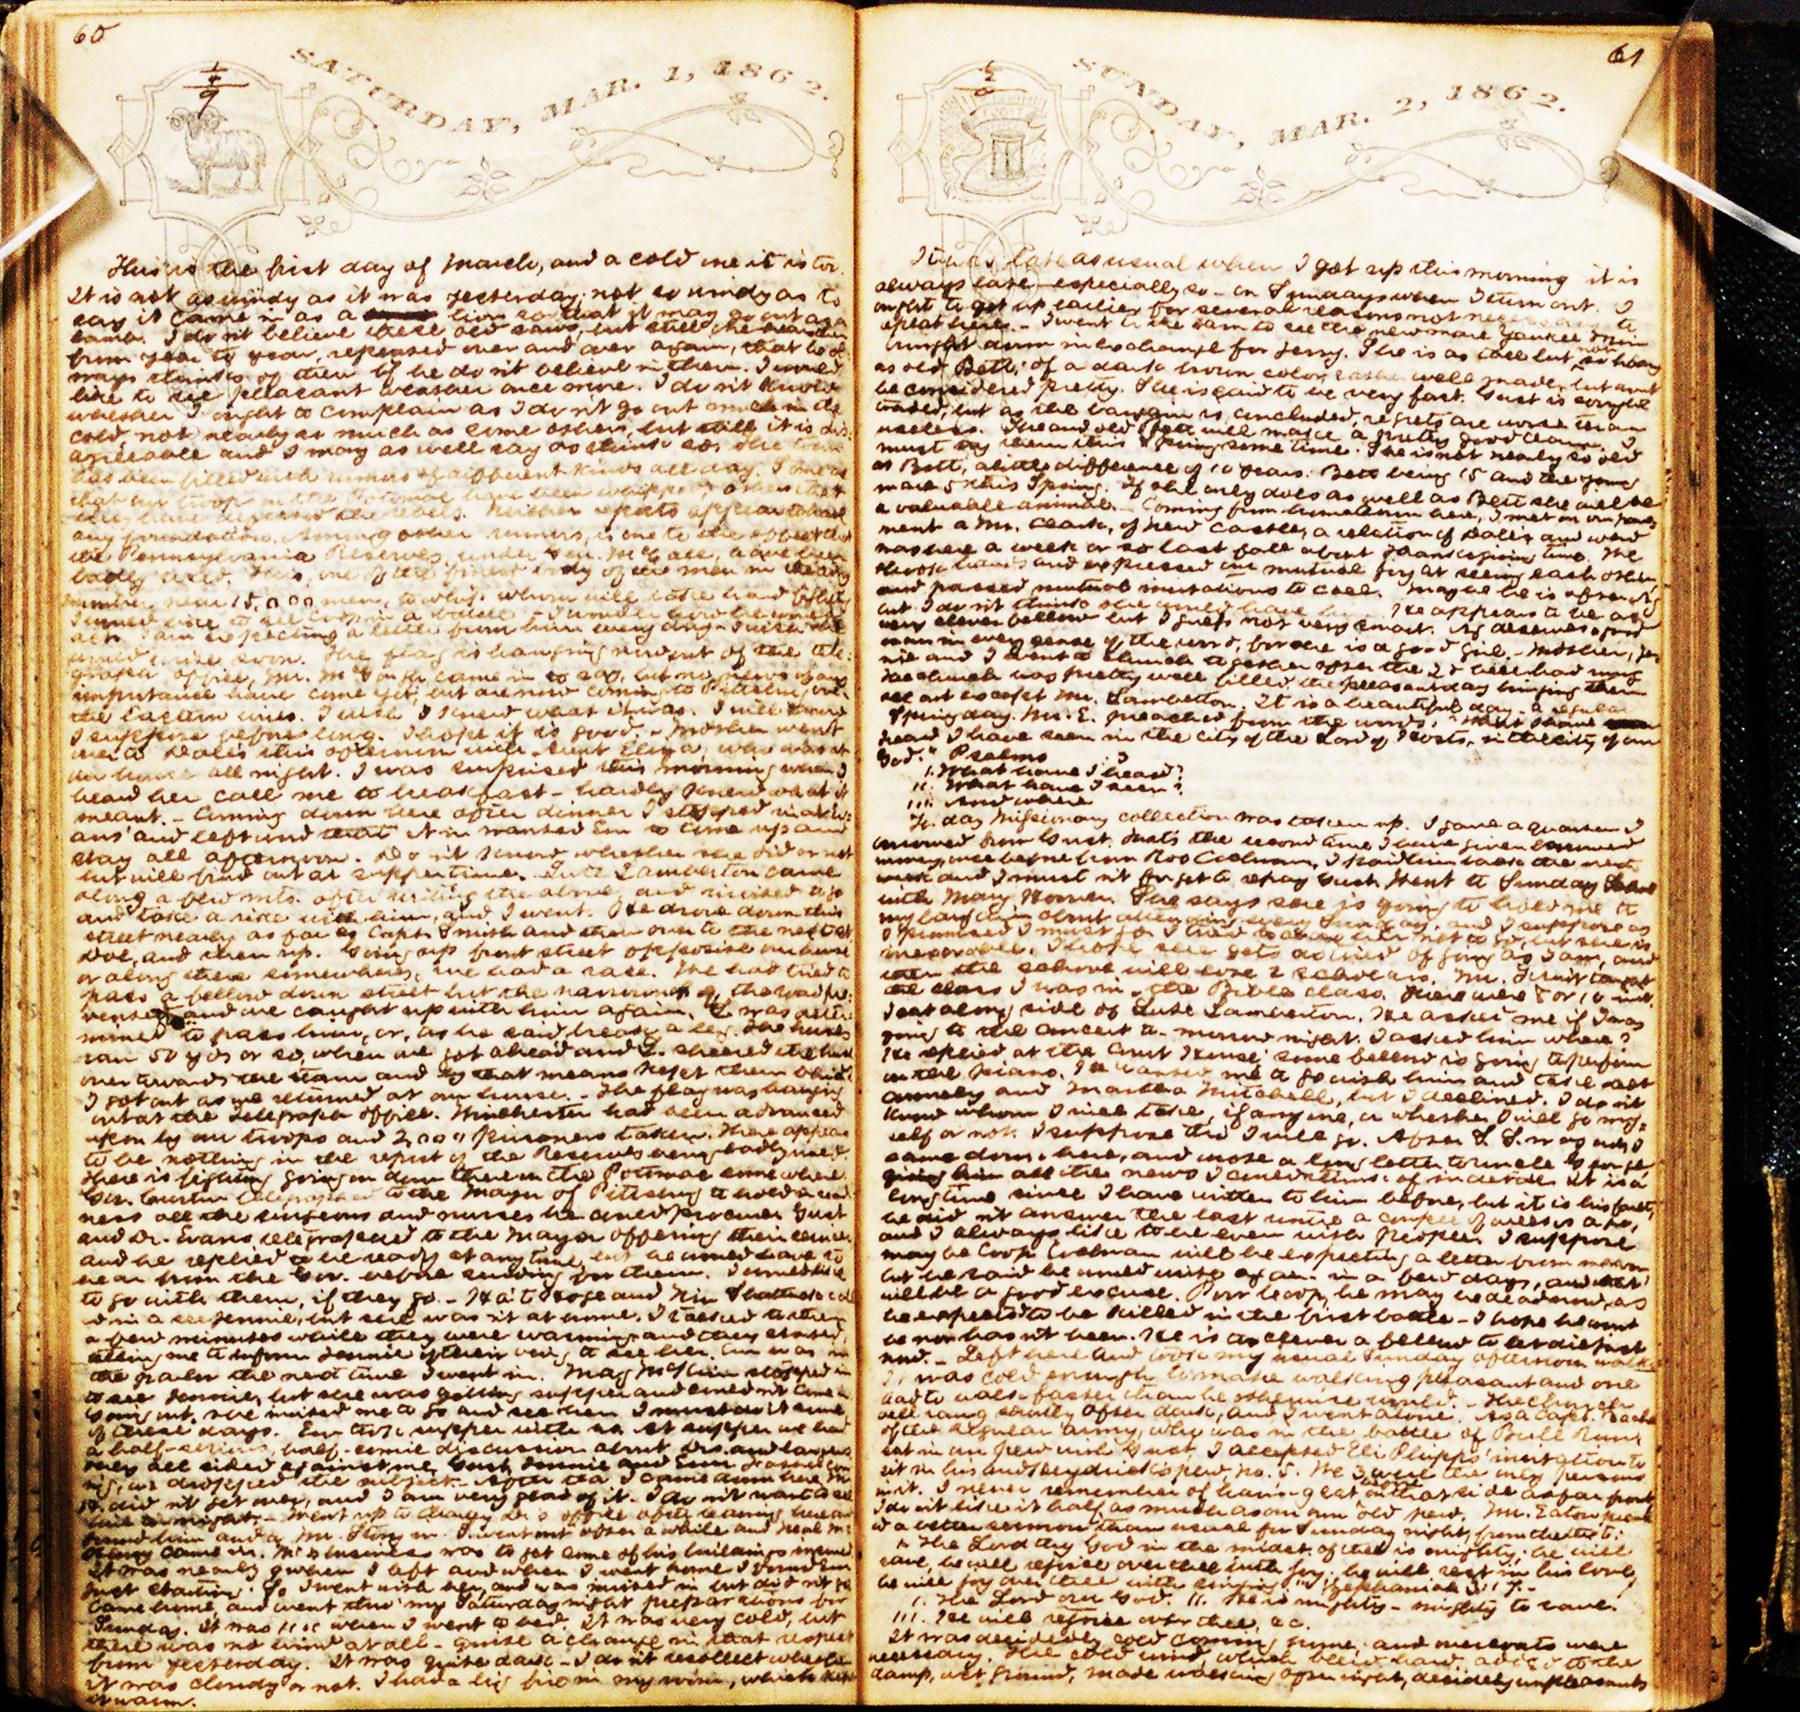 60
SATURDAY, MAR. 1, 1862.
This is the first day of March, and a cold one it is too.
It is not as windy as it was yesterday; not so windy as to
say it came in as a lion so that it may go out as a
lamb. I don't believe these old saws, but still one hears them
from year to year, repeated over and over again, that he al-
ways thinks of them if he don't believe in them. I would
like to see pleasant weather once more. I don't know
whether I ought to complain as I don't go out much in the
cold, not nearly so much as some others, but still it is dis-
agreeable and I may as well say as think so. The town
has been filled with rumors of different kinds all day. Some as
that our troops on the Potomac have been whipped, others that
they have the rebels. Neither reports appear to have
any foundation. Among other rumors, is one to the effect that
the Pennsylvania Reserves, under Gen. McCall, have been
badly used. This, one of the finest body of the men in the army
number near 15,000 men, to whip whom will take hard fighting
I would like to see Coop in a battle. I wonder how he would
act. I am expecting a letter from him every day. I wish he
would write soon. The flag is hanging now out of the tele-
graph office, Mr. came in to say, but no news of any
importance have come yet, but are now coming to Pittsburg over
the Eastern wires. I wish I knew what it was. I will know
I suppose before long. I hope it is good. - Mother went
over to Dale's this afternoon with Aunt Eliza, who was at
our house all night. I was surprised this morning when I
heard her call me to breakfast - hardly knew what it
meant. - Coming down here after dinner I stopped in at
and left word that Jen wanted Em to come up and
stay all afternoon. Don't know whether she did or not
but will find out at supper time. Lute Lamberton came
along a few mts. after writing the above, and invited me to go
and take a ride with him, and I went. He drove down this
street nearly as far as Capt. Smith and then over to the next st
and then up. Going up front street opposite our house
or along there somewhere, we had a race. He had tried to
pass a fellow down street but the narrowness of the road pre-
vented and we caught up with him again. L. was deter-
mined to pass him, or, as he said, break a leg. The horses
ran 50 yds or so, when we got ahead and L. sheered the
over towards the team and by that means kept them behind
I got out as we returned at our house. - The flag was hanging
out at the telegraph office. Winchester had been advanced
upon by our troops and 3,000 prisoners taken. There appears
to be nothing in the report of the Reserves being badly used.
There is fighting going on down there on the Potomac somewhere.
Gov. Curtin telegraphed to the Mayor of Pittsburg to hold in readi-
ness all the surgeons and nurses he could procure. Gust
and Dr. Evans telegraphed to the Mayor offering their services
and he replied to be ready at any time, but he would have to
hear from the Gov. before sending for them. I would like
to go with them, if they go. - Kate Hoge and call
ed in to see Jennie, but she was n't at home. I talked to them
a few minutes while they were warming and they started,
telling me to inform Jennie of their being to see her. Em was in
the parlor the next time I went in. Mag McKim stopped in
to see Jennie, but she was getting supper and could n't come in
Going out, she invited me to go and see them. I must do it some
of these days. Em took supper with us. At supper we had
a half-serious, half-comic discussion about Drs. and lawyers
they all sided against me, Gust, Jennie and Em
we dropped the subject. - After tea I came down here.
did n't get over, and I am very glad of it. I don't want to see
him to-night. - Went up to office after leaving here and
found him and a Mr. Story in. I went out after a while and
came in. business was to get some of his buildings insured
It was nearly 9 when I left and when I went home I found Em
just starting. So I went with her, and was invited in but did n't go
Came home, and went thro' my Saturday night preparations for
Sunday. It was when I went to bed. It was very cold, but
there was no wind at all - quite a change in that respect
from yesterday. It was quite dark - I don't recollect whether
it was cloudy or not. I had a big fire in my room, which kept
it warm.
61
SUNDAY, MAR. 2, 1862.
It was late as usual when I got up this morning it is
always late - especially so - on Sundays when I turn out. I
ought to get up earlier for several reasons not necessary to
repeat here. - I went to the barn to see the new mare Yankee
brought down in exchange for Jerry. She is as tall but not so heavy
as old Bett, of a dark brown color, rather well made, but can't
be considered pretty. She is said to be very fast. Gust is sorry he
traded, but as the bargain is concluded, regrets are worse than
useless. She and old Bett will make a pretty good team. I
must try them this Spring some time. She is not nearly so old
as Bett, a little difference of 10 years. Bett being 15 and the young
mare 5 this Spring. If she only does as well as Bett she will be
a valuable animal. - Coming from home down here, I met on our pave-
ment a Mr. Clark, of New Castle, a relation of Dale's and who
was here a week or so last fall about Thanksgiving time. We
shook hands and expressed our mutual joy at seeing each other,
and passed mutual invitations to call. Maybe he is after
but I don't think she would have him. He appears to be a
very clever fellow but I guess not very smart. deserves a good
man in every sense of the word, for she is a good girl. - Mother, Jen-
nie and I went to church together after the 2d bell had rung
The church was pretty well filled, the pleasant day bringing them
all out except Mr. Lamberton. It is a beautiful day - a regular
Spring day. Mr. E. preached from the words, "What I have
heard I have seen in the city of the Lord of Hosts, in the city of our
God." Psalms
I. What have I heard?
II. What have I seen?
III. And where
To-day Missionary collection was taken up. I gave a quarter I
borrowed from Gust. That's the second time I have given borrowed
money, once before from Coop Cochran. I paid him back the next
week and I must n't forget to repay Gust. Went to Sunday School
with Mary Horner. She says she is going to hold me to
my bargain about attending every Sunday, and I suppose as
I promised I must go. I tried to her not to go, but she is
inexorable. I hope she gets as tired of going as I am, and
then the school will lose 2 scholars. Mr. taught
the class I was in - the Bible class. There were 8 or 10 in it.
I sat along side of Lute Lamberton. He asked me if I was
going to the concert to-morrow night. I asked him where?
He replied at the Court House; some fellow is going to perform
on the piano. He wanted me to go with him and take
and Martha Mitchell, but I declined. I don't
know whom I will take, if any one, or whether I will go my-
self or not. I suppose tho' I will go. After S. S. was out, I
came down here, and wrote a long letter to uncle George
giving him all the news I could think of in detail. It is a
long time since I have written to him before, but it is his fault,
he did n't answer the last until a couple of weeks ago,
and I always like to be even with people. I suppose
may be Coop Cochran will be expecting a letter from me
but he said he would write again in a few days, and that
will be a good excuse. Poor Coop, he may be dead now, as
he expected to be killed in the first battle - I hope he wont
be nor hasn't been. He is too clever a fellow to let die just
now. - Left here and took my usual Sunday afternoon walk.
It was cold enough to make walking pleasant and one
had to walk faster than he otherwise would. - The church
bell rang shortly after dark, and I went alone. As a Capt.
of the regular army, who was in the battle of Bull Run,
sat in our pew with Gust, I accepted Eli Phipps' invitation to
sit in his and Heydrick's pew, no. 5. We 3 were the only persons
in it. I never remember of having sat on that side as far front
I don't like it half as much as our own old pew. Mr. Eaton preach-
ed a better sermon than usual for Sunday night, from the text:
"The Lord thy God in the midst of thee is mighty; he will
save, he will rejoice over thee with joy; he will rest in his love,
he will joy over thee with singing." Zephaniah 3:17. -
I. The Lord our God. II. He is mighty - mighty to save.
III. He will rejoice over thee, &c.
It was decidedly cold coming home, and overcoats were
necessary. The cold wind, which blew hard, added to the
damp, wet ground, made walking after night, decidedly unpleasant.